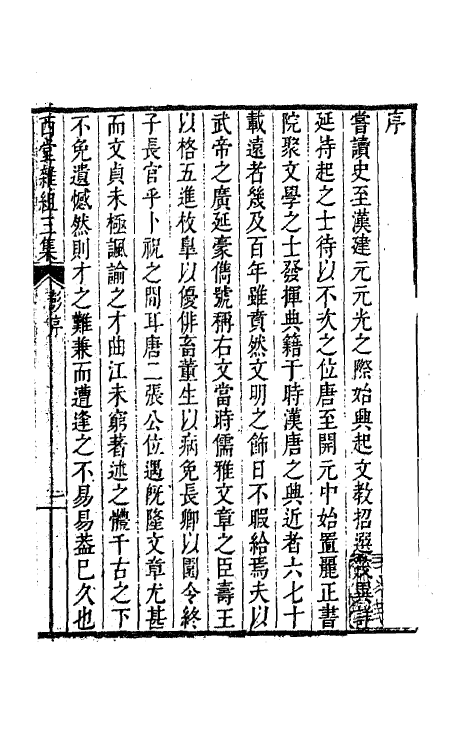 序
嘗讀史至漢建元元光之際始興起文教招選
延持起之士待以不次之位唐至開元中始置麗正書
院聚文學之士發揮典籍于時漢唐之興近者六七十
載遠者幾及百年雖賁然文明之飾日不暇給焉夫以
武帝之廣延豪儁號稱右文當時儒雅文章之臣壽王
以格五進枚臯以優俳畜董生以病免長卿以園令終
子長官乎卜祝之間耳唐二張公位遇旣隆文章尤甚
而文貞未極諷諭之才曲江未窮著述之體千古之下
不免遺憾然則才之難兼而遭逢之不易易葢已久也
西堂雜組三集
彭序